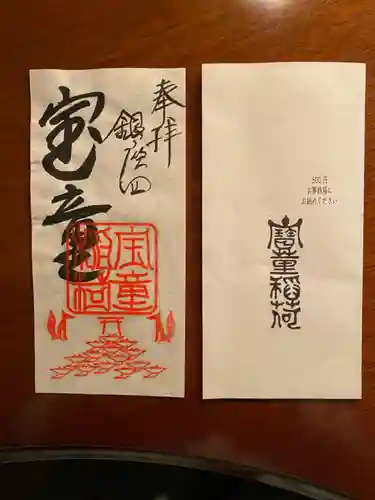 奉拝
銀座四
宝童
宝童
稲荷
500円
お賽銭箱に
お納めください
寶童稲荷